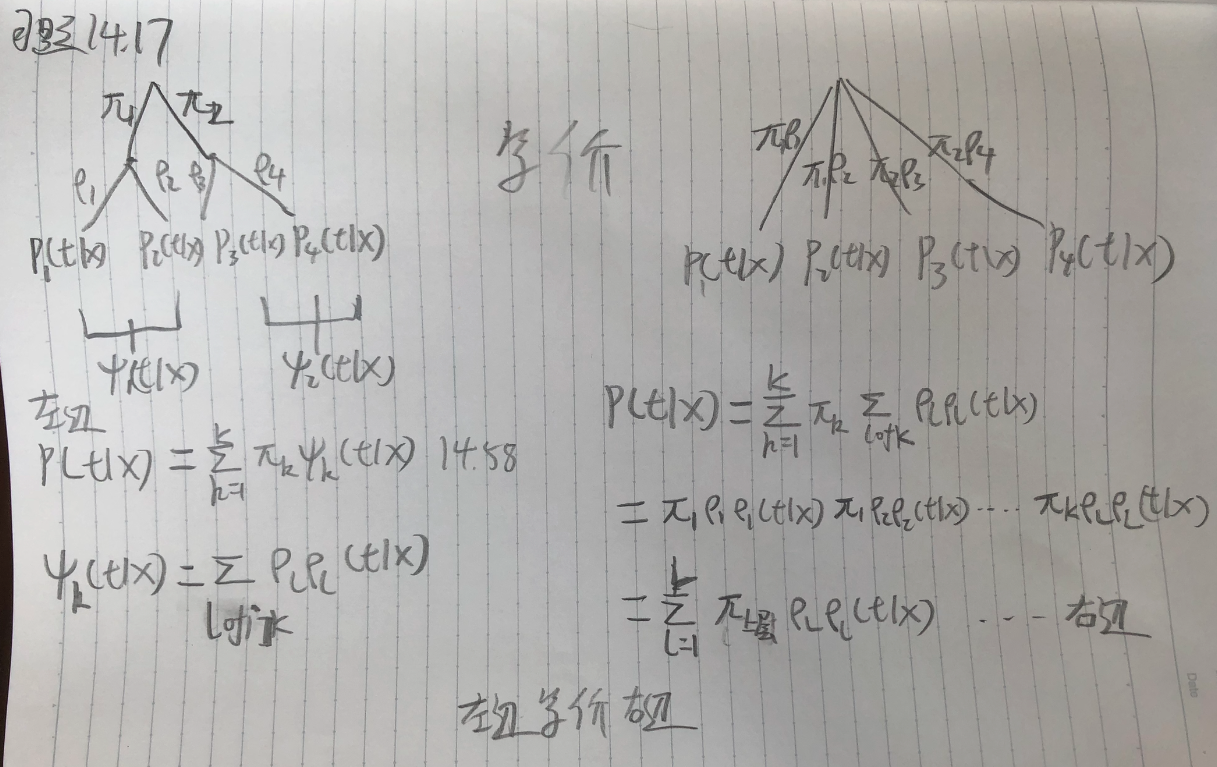 习题14.17
π1 π2
ρ1 ρ2 ρ3 ρ4
P1(t|x) P2(t|x) P3(t|x) P4(t|x)
ψ1(t|x) ψ2(t|x)
等价
π1ρ1 π1ρ2 π2ρ3 π2ρ4
P1(t|x) P2(t|x) P3(t|x) P4(t|x)
左边
P(t|x) = Σ_{k=1}^{K} πk ψk(t|x) 14.58
ψk(t|x) = Σ_{l of k} ρlρl(t|x)
P(t|x) = Σ_{k=1}^{K} πk Σ_{l of k} ρlρl(t|x)
= π1ρ1ρ1(t|x) π1ρ2ρ2(t|x) ···· πKρLρL(t|x)
= Σ_{l=1}^{L} ρLρl(t|x) ···· 右边
左边等价右边